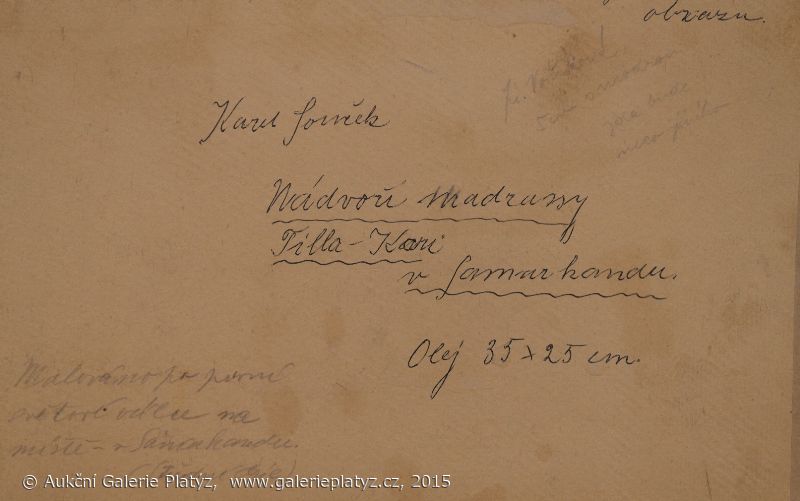 obrazu.
Karel Souček
Nádvoří Madrassy
Tilla-Kari
v Samarkandu.
Olej 35 x 25 cm.
Malováno po první
světové válce na
místě - v Samarkandu.
© Aukční Galerie Platýz, www.galerieplatyz.cz, 2015